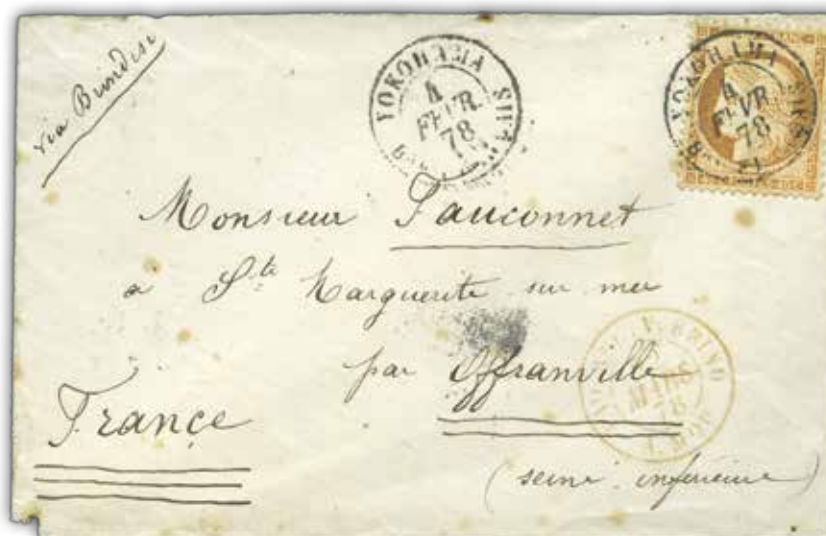 via Brindisi
YOKOHAMA
4
FEVR.
78
YOKOHAMA
4
FEVR
78
Monsieur Fauconnet
a Ste Marguerite sur mer
par Offranville
France
(seine inferieure)
MARS
78